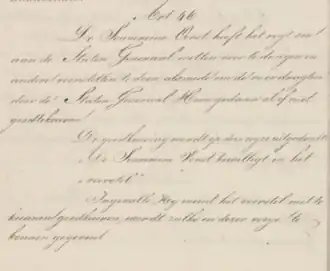 Art 46
De Souvereine Vorst heeft het regt om
aan de Staten Generaal wetten voor te dragen en
andere voorstellen te doen alsmede om de voordragten
door de Staten Generaal Hem gedaan al of niet
goedtekeuren!
De goedkeuring wordt op deze wyze uitgedrukt
"De Souvereine Vorst bewilligt in het
voorstel"
Ingevalle Hy meent het voorstel niet te
kunnen goedkeuren, wordt zulks in dezer voege te
kennen gegeven